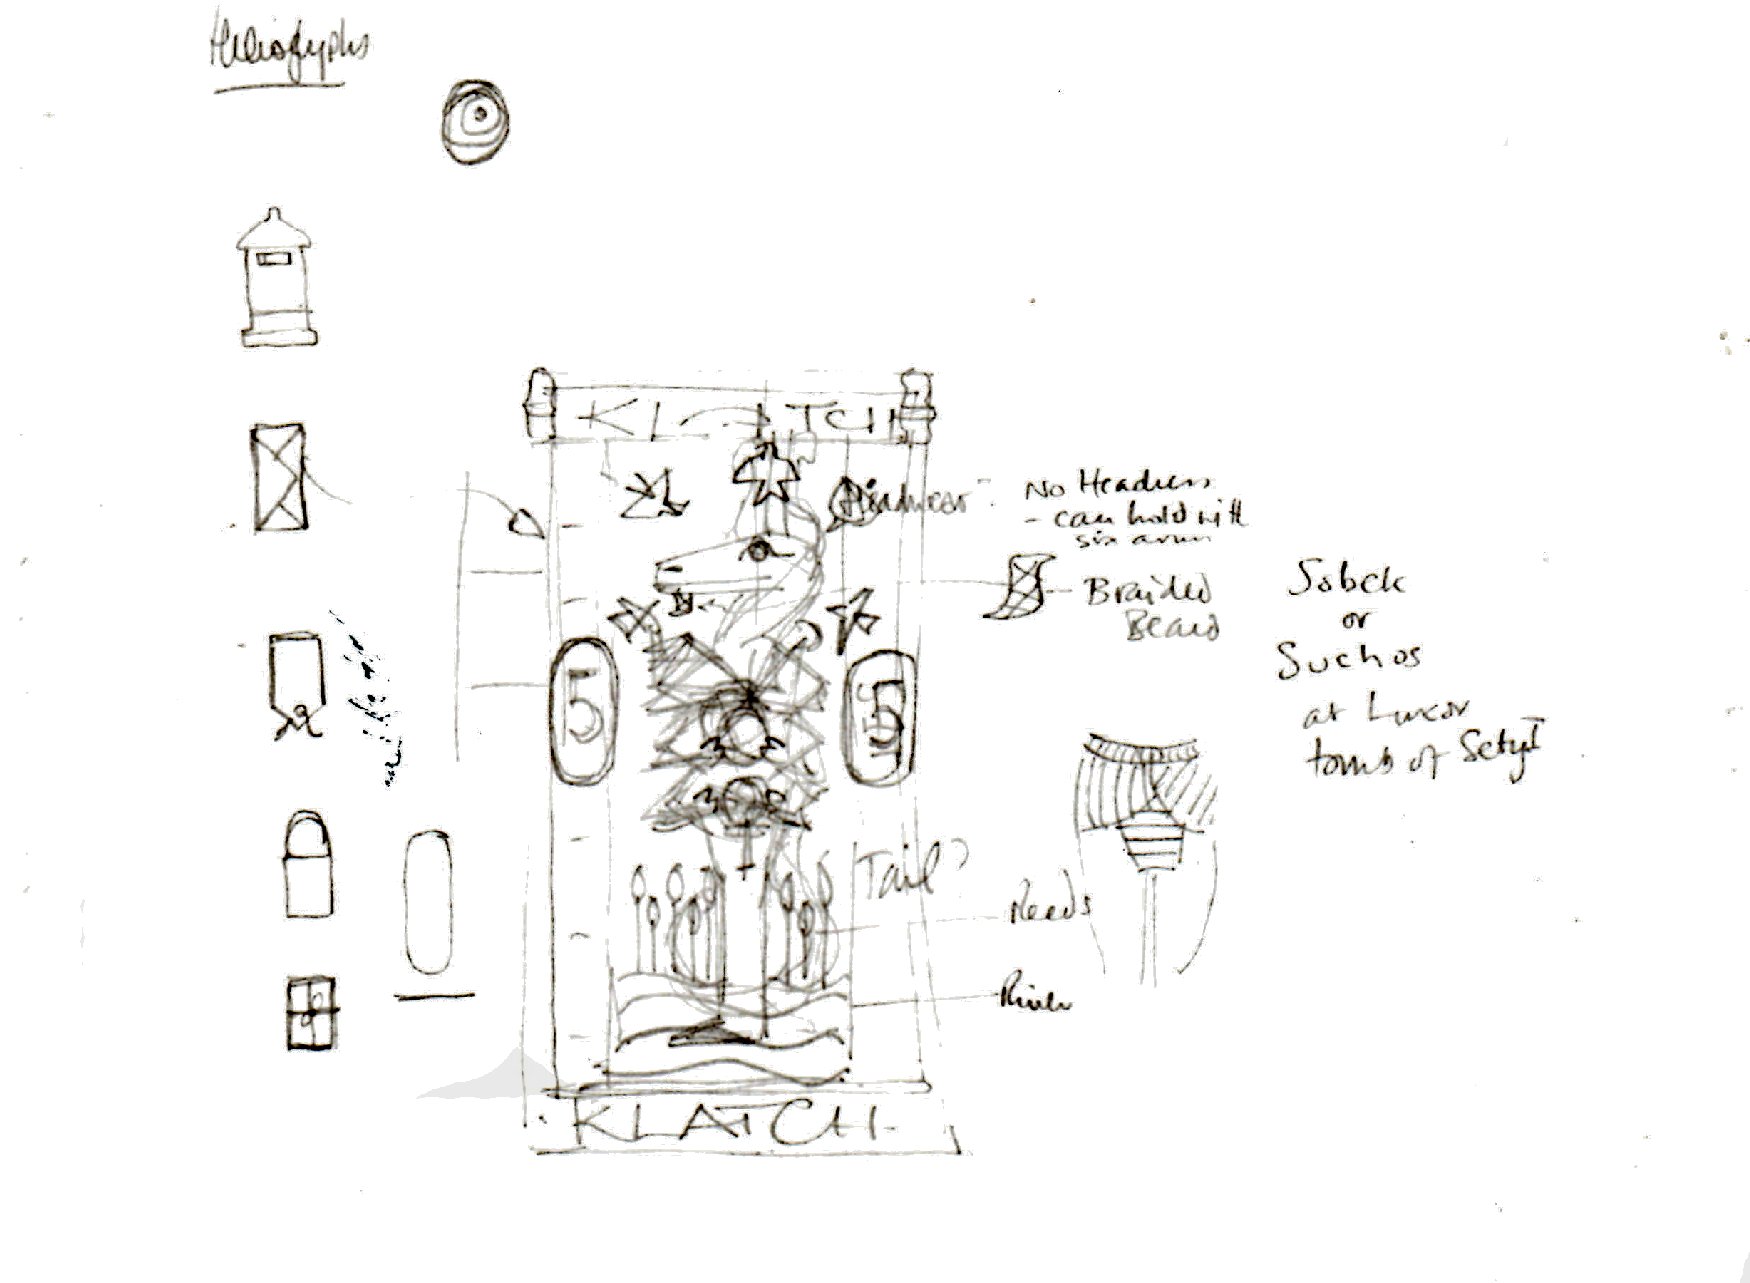 Heliogyphs
KLATCH
Headwear
No Headress
- can hold with
six arms
Braided
Beard
Sobek
or
Suchos
at Luxor
tomb of Sety I
5
5
Tail?
Reeds
River
KLATCH